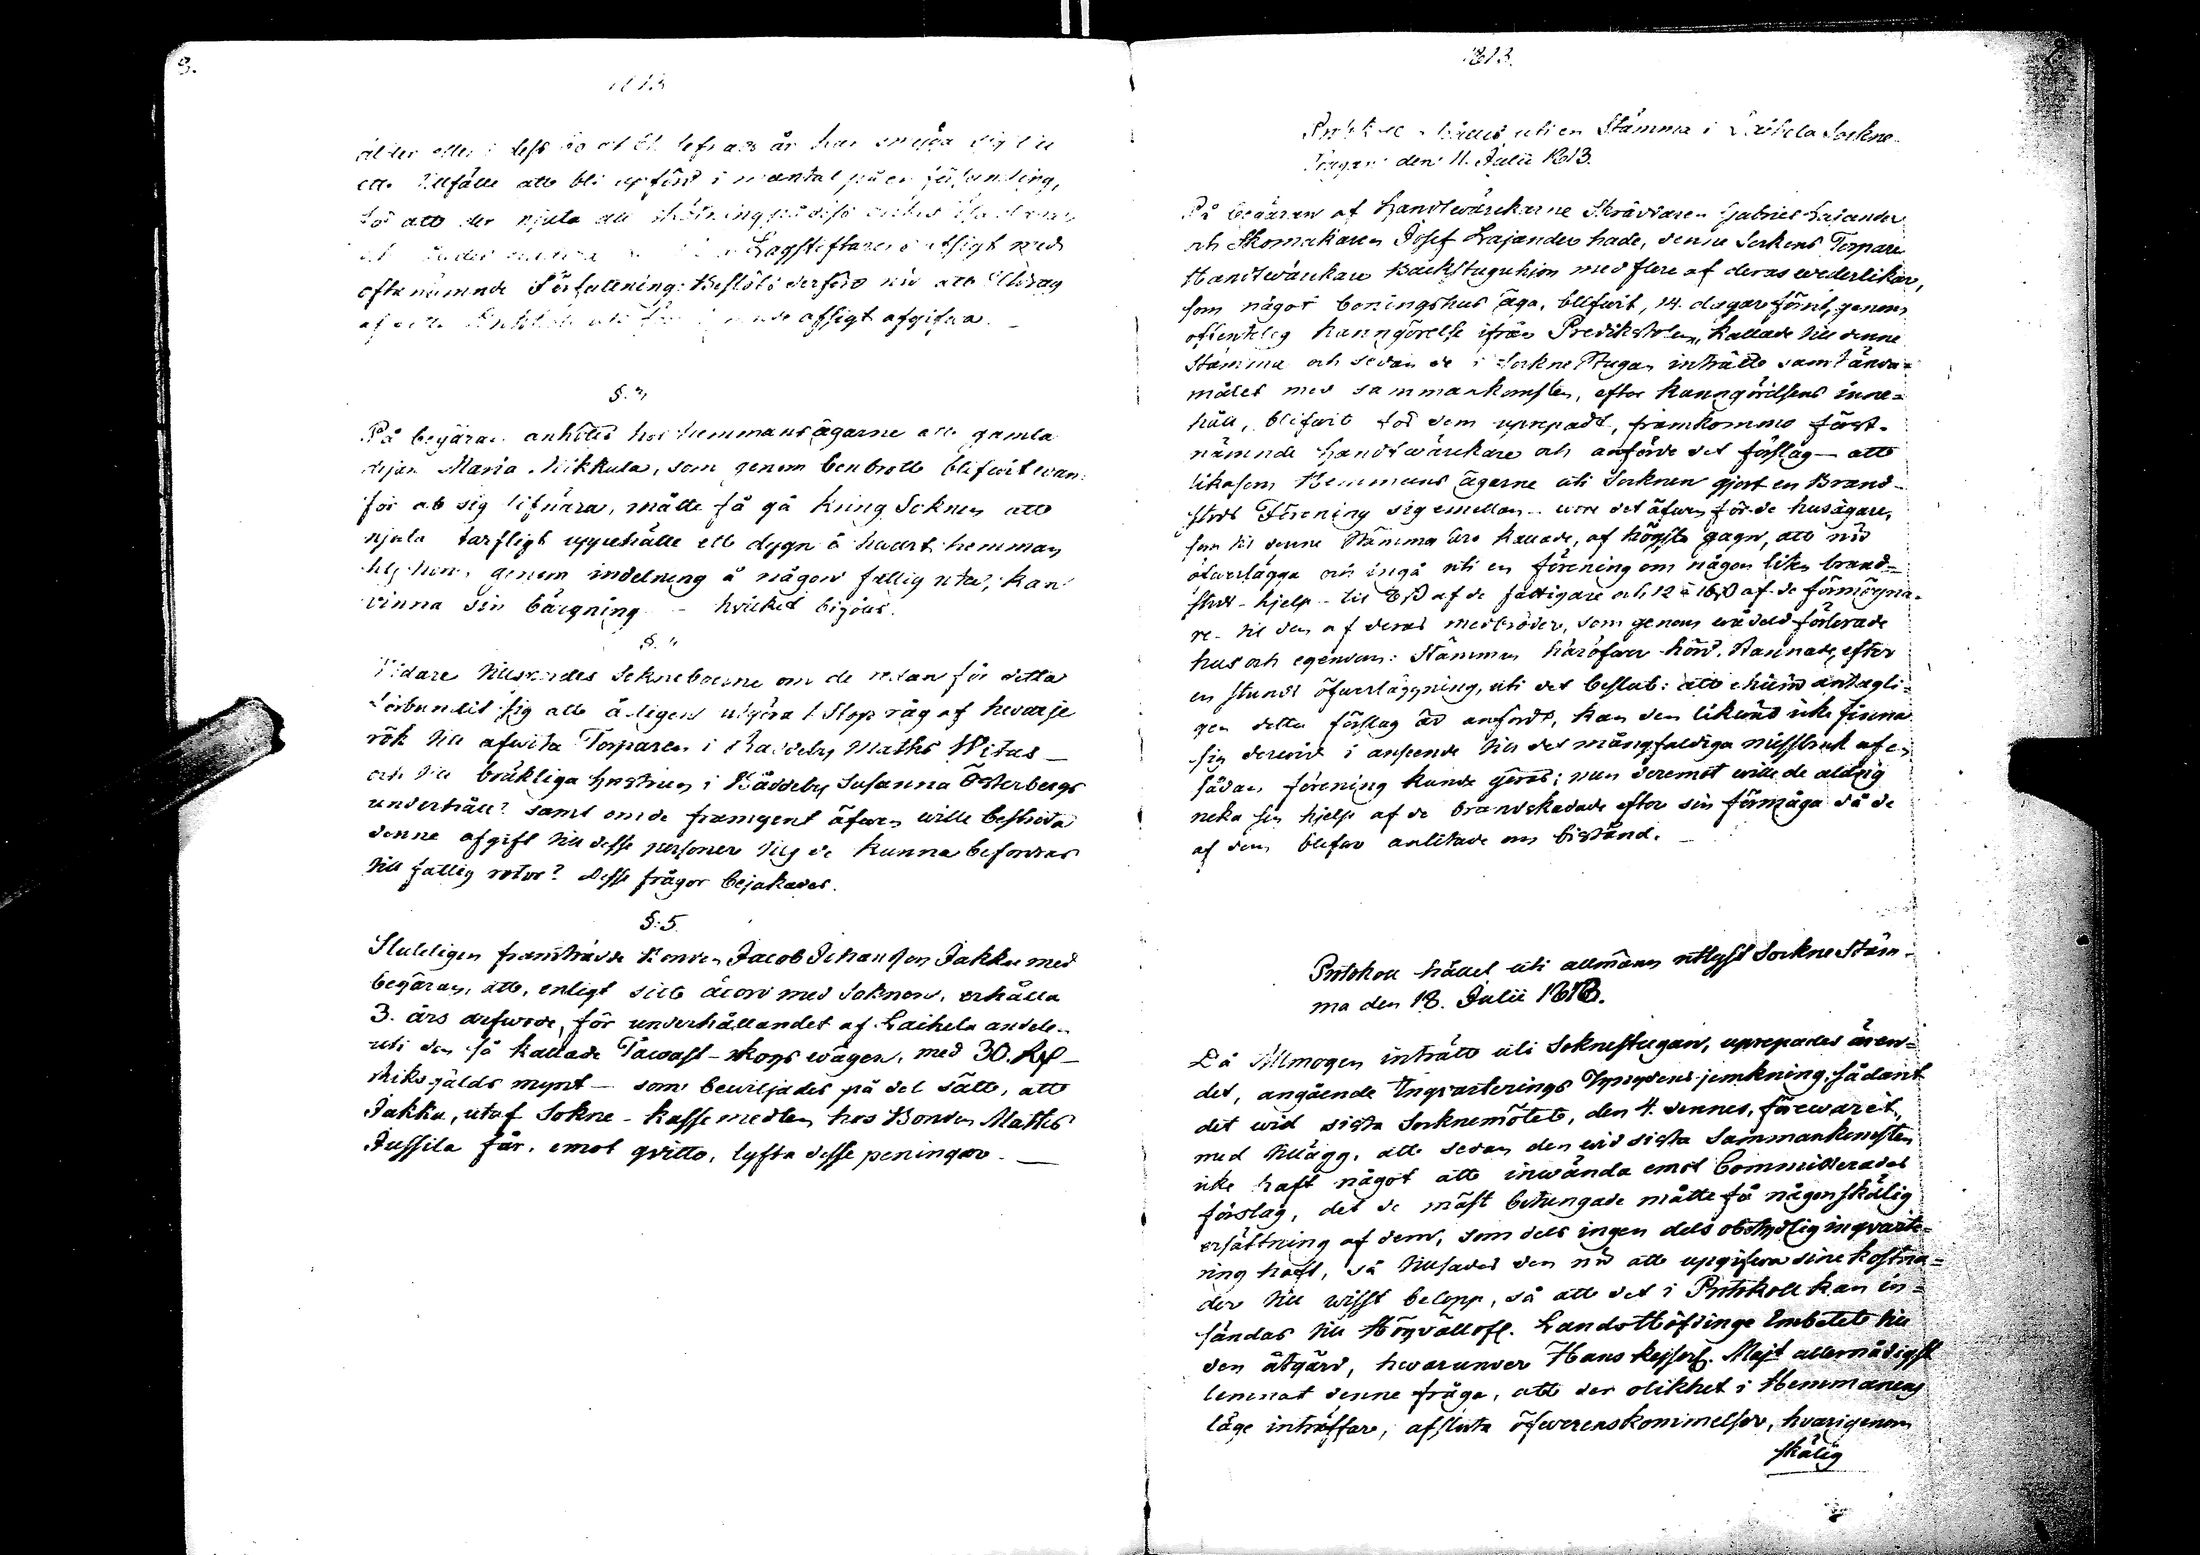 8.
1813
ålder eller
ett tillfälle att bli upförd i mantal på en
för att der njuta all skötning
Lagstiftarens afsigt med
oftanämnde Författning: Beslöts derföre nu att Utdrag
afsigt afgifva. _
§. 3
På begäran anhölts hos hemmansägarne att gamla
pijan Maria Mikkula, som genom benbrott blifwit wan-
för at sig lifnära, måtte få gå kring Soknen att
njuta tarfligt uppehälle ett dygn å hwart hemman
till hon, genom indelning å någon fattig rota, kan
vinna sin bärgning - hvilket bejöds.
§. 4
Widare tillspordes Sokneboerne om de redan för detta
förbundit sig att årligen utgöra 1 Stop råg af hwarje
rök till afwita Torparen i Baddeby Maths Witas _
och till bräkliga hustrun i Båddeby Susanna Österbergs
underhåll? samt om de framgent äfwen wille bestrida
denne afgift till desse personer till de kunna befordras
till fattig rotor? Desse frågor bejakades.
§. 5
Sluteligen framträdde Bonden Jacob Johansson Jakku med
begäran, att, enligt sitt ackord med Soknen, erhålla
3. års arfwode, för underhållandet af Laihela andelen
uti den så kallade Tawast-skogs wägen, med 30. Rd
Riksgälds mynt _ som bewiljades på det sätt, att
Jakku, utaf Sokne-kasse medlen hos Bonden Matths
Jussila får, emot qvitto, lyfta desse peningar. _
1813.
Protokoll hållit uti en Stämma i Laihela Sockne-
stugan den 11. Julii 1813.
På begäran af Handtwärckarne Skräddaren Gabriel Lajander
och Skomakaren Josef Lajander hade, denne Sockens Torpare
Handtwärckare Backstuguhjon med flere af deras wederlikar,
som något boningshus äga, blifwit, 14. dagar förut, genom
offentelig kungörelse ifrån Predikstolen, kallade till denne
Stämma och sedan de i SockneStugan inträtt samt ända-
målet med sammankomsten, efter kungörelsens inne-
håll, blifwit för dem uprepadt, framkommo först-
nämnde Handtwärckare och anförde det förslag — att
likasom Hemmans ägarne uti Socknen gjort en Brand-
stods Förening sig emellan - wore det äfwen för de husägare,
som till denne Stämma äro kallade, af högsta gagn, att nu
öfwerlägga och ingå uti en förening om någon liten brand-
stods-hjelp - till 8 ß af de fattigare och 12 à 16 ß af de förmögna-
re - till den af deras medbröder, som genom wådeld förlorade
hus och egendom: Stämman häröfwer hörd, stannade, efter
en stunds öfwerläggning, uti det beslut: att ehuru antagli-
gen detta förslag är anfördt, kan den likwäl icke finna
sig derwid i anseende till det mångfaldiga missbruk af en
sådan förening kunde göras; men deremot wille de aldrig
neka sin hjelp af de brandskadade efter sin förmåga då de
af dem blefwo anlitade om bistånd. _
Protokoll hållet uti allmänn utlyst Sockne Stäm-
ma den 18. Julii 1813.
Då Allmogen inträtt uti Soknestugan, uprepades ären-
det, angående Inqvarterings Tyngdens jemkning, sådant
det wid sista Socknemötet, den 4. dennes, förewarit,
med tillägg, att sedan den wid sista Sammankomsten
icke haft något att inwända emot Committerades
förslag, det de mäst betungade måtte få någon skälig
ersättning af dem, som dels ingen dels obetydlig inqvarte-
ring haft, så tillsades den nu att upgifwa sine kostna-
der till wisst belopp, så att det i Protokoll kan in-
sändas till Högvällofl. LandsHöfdinge Embetet till
den åtgärd, hwarunder Hans kejserl. Majt allernådigst
lemnat denne fråga, att der olikhet i Hemmanens
läge inträffar, afsluta öfwerenskommelser, hvarigenom
skälig